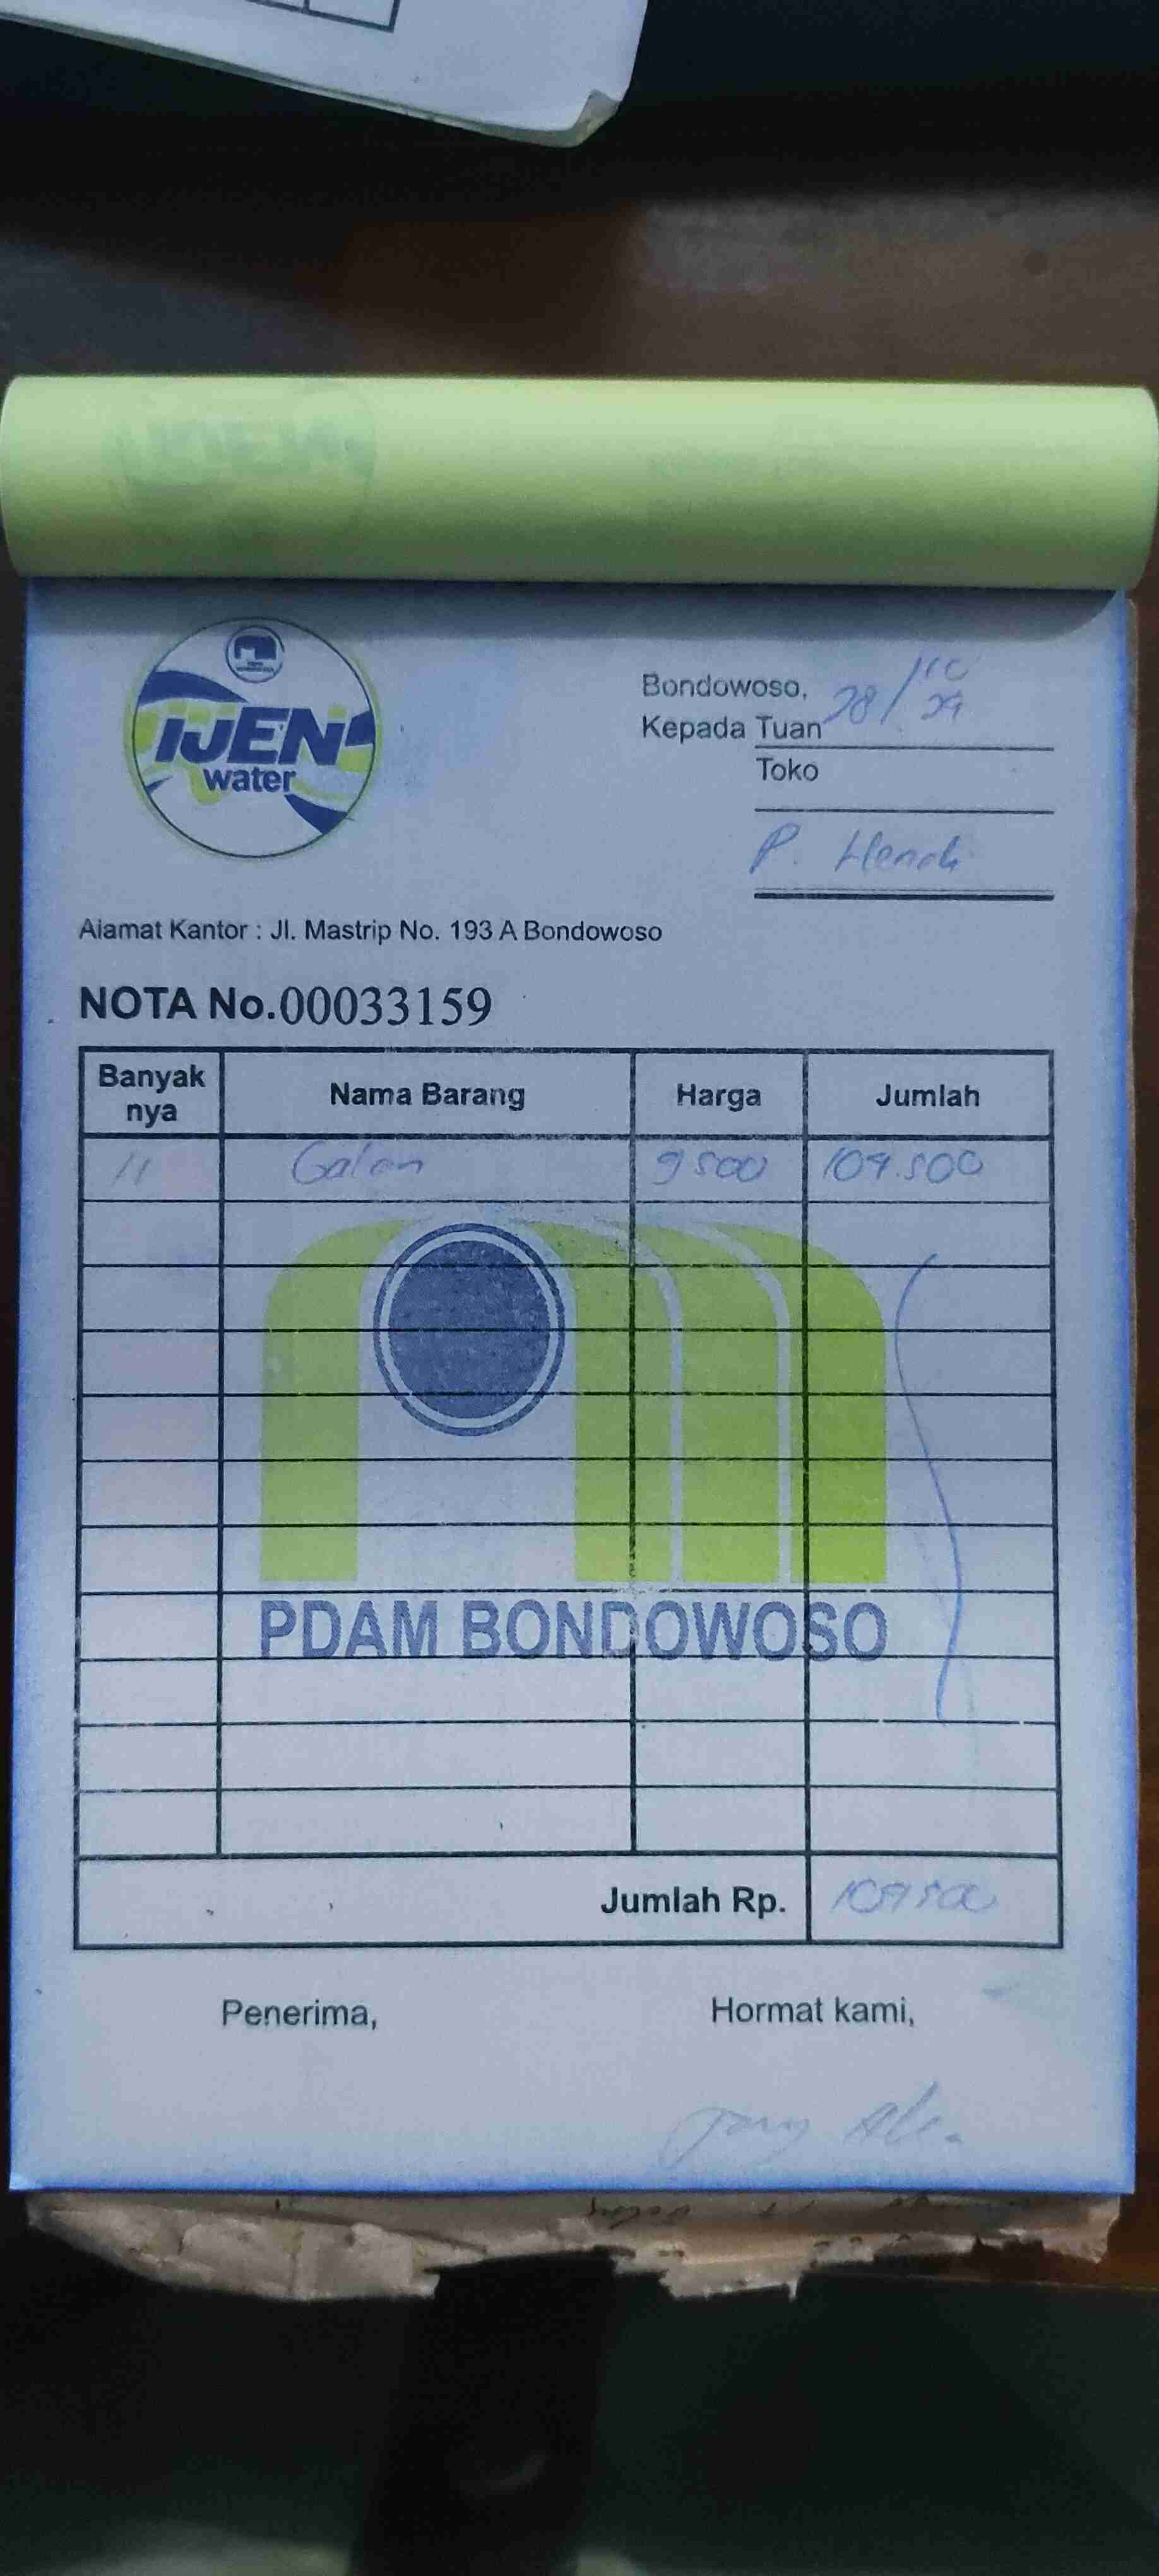 IJEN
water
Bondowoso, 28/10
Kepada Tuan
Toko
P. Hendi
Alamat Kantor : Jl. Mastrip No. 193 A Bondowoso
NOTA No.00033159
Banyak nya Nama Barang Harga Jumlah
11 Galon 9500 104.500
PDAM BONDOWOSO
Jumlah Rp. 104500
Penerima, Hormat kami,